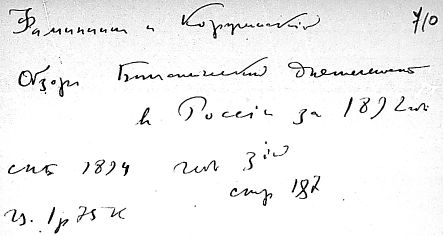 Фаминцин и Коржинский 7/0
Обзоръ Ботанической деятельности
въ Россіи за 1892 годъ
спб 1894 годъ 3ій
стр 187
ц. 1р 75 к